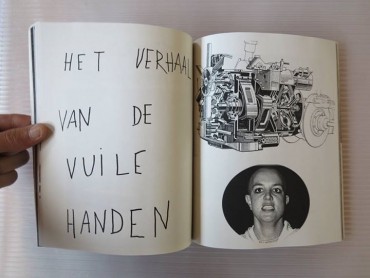 HET VERHAAL
VAN DE
VUILE
HANDEN